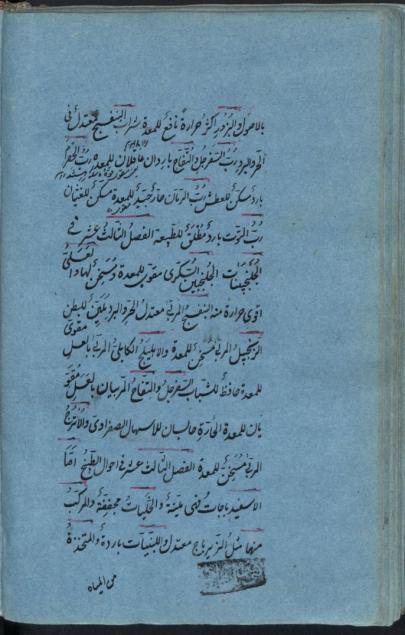 بالاصول والبزور اكثر حرارة نافع للمعدة شراب البنفسج معتدل فى
الحر والبرد ربّ السفرجل والتفاح باردان عاقلان للمعدة ربّ الحصرم
بارد مسكن للعطش ربّ الرمان حار جيد للمعدة مسكن للغثيان
ربّ التوت بارد مطلق للطبيعة الفصل الثالث عشر فى
الجلنجبينات الجلنجبين السكرى مقوى للمعدة ومسخن لها والعسلى
اقوى حرارة منه البنفسج المربى معتدل الحر والبرد يلين للبطن
الزنجبيل المربى مسخن للمعدة والاهليلج الكابلى المربى بالعسل مقوى
للمعدة حافظ للشباب السفرجل والتفاح المربيان بالعسل مقو
يان للمعدة الحارة حابسان للاسهال الصفراوى والاترج
المربى مسخن للمعدة الفصل الثالث عشر فى احوال الطبيخ امّا
الاسفيدباجات فهى مليّنة والخليات مجففة والمركب
منهما مثل الزيرباج معتدل واللبنيات باردة والمتخذة
من المياه